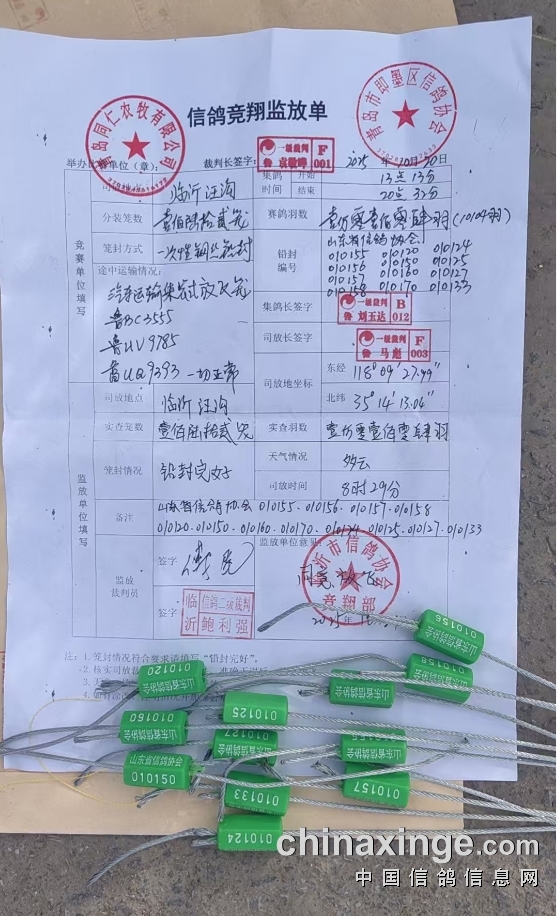 信鸽竞翔监放单
青岛同仁农牧有限公司
青岛市即墨区信鸽协会
举办比赛单位（章）：
裁判长签字：
一级裁判 F
鲁 001
2025 年 10月20日
竞赛单位填写
临沂汪沟
集鸽时间
开始
13点13分
结束
20点32分
分装笼数
壹佰陆拾贰笼
赛鸽羽数
壹万零壹佰零肆羽(10104羽)
笼封方式
一次性钢丝铅封
铅封编号
山东省信鸽协会
010155 010120 010124
010156 010150 010125
010157 010160 010127
010158 010170 010133
途中运输情况：
汽车运输集鸽封放飞笼
鲁BC3555
鲁UV9785
鲁UQ9393 一切正常
集鸽长签字
一级裁判 B
鲁 刘玉达 012
司放长签字
一级裁判 F
鲁 马彪 003
司放地坐标
东经
118°09′27.99″
北纬
35°14′13.04″
监放单位填写
司放地点
临沂汪沟
实查笼数
壹佰陆拾贰笼
实查羽数
壹万零壹佰零肆羽
笼封情况
铅封完好
天气情况
多云
司放时间
8时29分
备注
山东省信鸽协会 010155、010156、010157、010158
010120、010150、010160、010170、010124、010125、010127、010133
监放裁判员
签字
签字
临沂
信鸽二级裁判
鲍利强
监放单位意见：
同意放飞
临沂市信鸽协会
竞翔部
注：1.笼封情况符合要求请填写“铅封完好”。
010156
010120
山东省信鸽协会
山东省信鸽协会
山东省信鸽协会
010125
010160
010127
山东省信鸽协会
010150
山东省信鸽协会
010133
010157
010124
chinaxinge.com
中国信鸽信息网